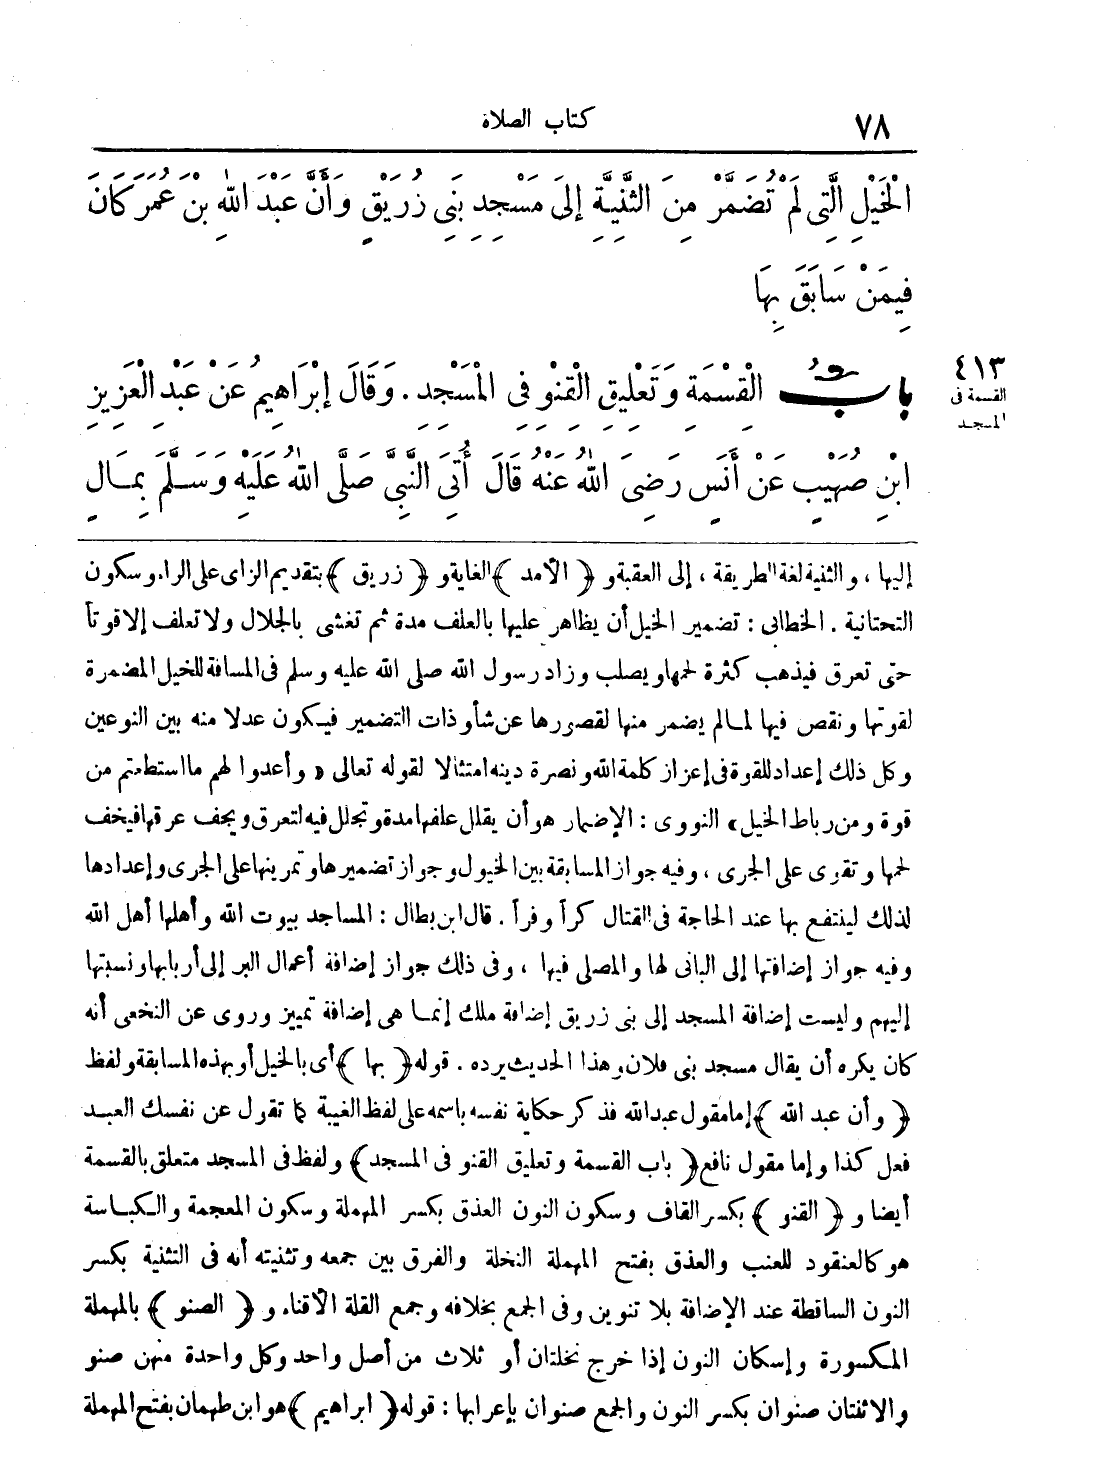 ٧٨ كتاب الصلاة
الْخَيْلِ الَّتِى لَمْ تُضَمَّرْ مِنَ الثَّنِيَّةِ إِلَى مَسْجِدِ بَنِى زُرَيْقٍ وَأَنَّ عَبْدَ اللهِ بْنَ عُمَرَ كَانَ
فِيمَنْ سَابَقَ بِهَا
٤١٣
القسمة فى
المسجد
بابُ الْقِسْمَةِ وَتَعْلِيقِ الْقِنْوِ فِى الْمَسْجِدِ. وَقَالَ إِبْرَاهِيمُ عَنْ عَبْدِ الْعَزِيزِ
ابْنِ صُهَيْبٍ عَنْ أَنَسٍ رَضِىَ اللهُ عَنْهُ قَالَ أُتِىَ النَّبِىُّ صَلَّى اللهُ عَلَيْهِ وَسَلَّمَ بِمَالٍ
إليها ، والثنية لغة الطريقة ، إلى العقبة و ﴿ الأمد ﴾ الغاية و ﴿ زريق ﴾ بتقديم الزاى على الراء وسكون
التحتانية . الخطابى : تضمير الخيل أن يظاهر عليها بالعلف مدة ثم تغشى بالجلال ولا تعلف إلا قوتاً
حتى تعرق فيذهب كثرة لحمها ويصلب وزاد رسول الله صلى الله عليه وسلم فى المسافة للخيل المضمرة
لقوتها ونقص فيها لما لم يضمر منها لقصورها عن شأو ذات التضمير فيكون عدلا منه بين النوعين
وكل ذلك إعداد للقوة فى إعزاز كلمة الله ونصرة دينه امتثالا لقوله تعالى « وأعدوا لهم ما استطعتم من
قوة ومن رباط الخيل » النووى : الإضمار هو أن يقلل علفها مدة وتجلل فيه لتعرق ويجف عرقها فيخف
لحمها وتقوى على الجرى ، وفيه جواز المسابقة بين الخيول وجواز تضميرها وتمرينها على الجرى وإعدادها
لذلك لينتفع بها عند الحاجة فى القتال كراً وفراً . قال ابن بطال : المساجد بيوت الله وأهلها أهل الله
وفيه جواز إضافتها إلى البانى لها والمصلى فيها ، وفى ذلك جواز إضافة أعمال البر إلى أربابها ونسبتها
إليهم وليست إضافة المسجد إلى بنى زريق إضافة ملك إنما هى إضافة تمييز وروى عن النخعى أنه
كان يكره أن يقال مسجد بنى فلان وهذا الحديث يرده . قوله ﴿ بها ﴾ أى بالخيل أو بهذه المسابقة ولفظ
﴿ وأن عبد الله ﴾ إما مقول عبد الله فذكر حكاية نفسه باسمه على لفظ الغيبة كما تقول عن نفسك العبد
فعل كذا وإما مقول نافع ﴿ باب القسمة وتعليق القنو فى المسجد ﴾ ولفظ فى المسجد متعلق بالقسمة
أيضا و ﴿ القنو ﴾ بكسر القاف وسكون النون العذق بكسر المهملة وسكون المعجمة والكباسة
هو كالعنقود للعنب والعذق بفتح المهملة النخلة والفرق بين جمعه وتثنيته أنه فى التثنية بكسر
النون الساقطة عند الإضافة بلا تنوين وفى الجمع بخلافه وجمع القلة الأقناء و ﴿ الصنو ﴾ بالمهملة
المكسورة وإسكان النون إذا خرج نخلتان أو ثلاث من أصل واحد وكل واحدة منهن صنو
والاثنتان صنوان بكسر النون والجمع صنوان بإعرابها : قوله ﴿ ابراهيم ﴾ هو ابن طهمان بفتح المهملة